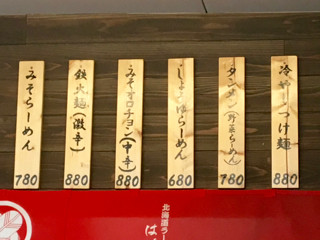 冷やしつけ麺
880
タンメン(野菜らーめん)
780
しょうゆらーめん
680
みそオロチョン(中辛)
880
鉄火麺(激辛)
880
みそらーめん
780
北海道ラー
は